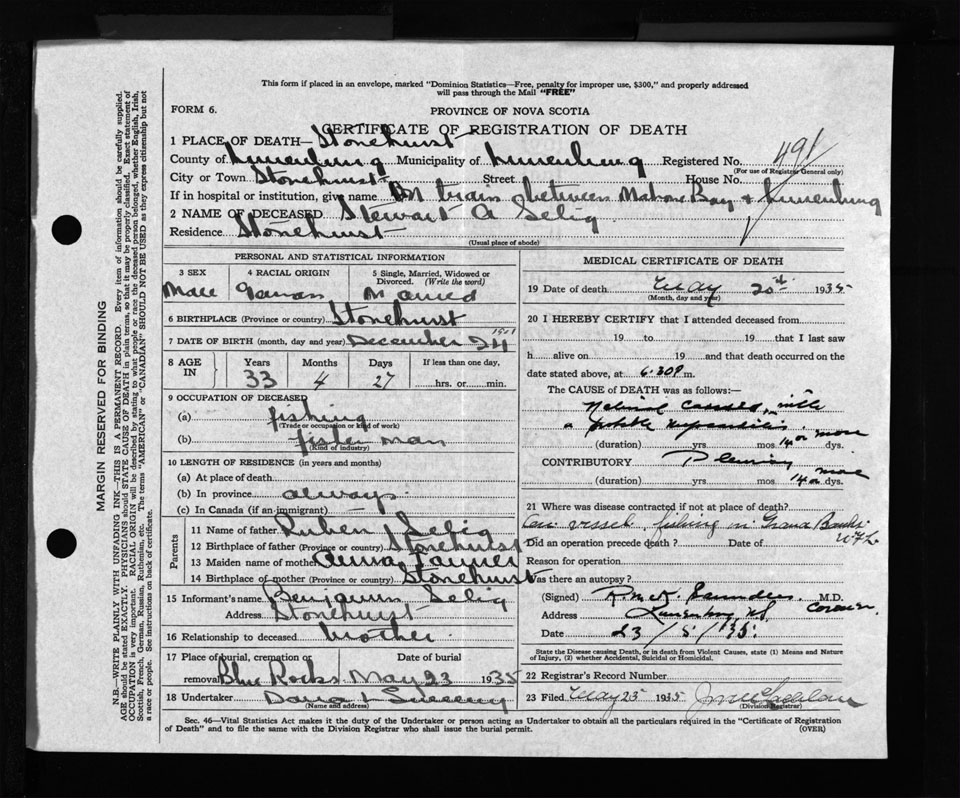 This form if placed in an envelope, marked "Dominion Statistics—Free, penalty for improper use, $300," and properly addressed
will pass through the Mail "FREE"
FORM 6.
PROVINCE OF NOVA SCOTIA
CERTIFICATE OF REGISTRATION OF DEATH
1 PLACE OF DEATH— Stonehurst
County of Lunenburg Municipality of Lunenburg Registered No. 491
(For use of Registrar General only)
City or Town Stonehurst Street House No.
If in hospital or institution, give name On train between Mahone Bay & Lunenburg
2 NAME OF DECEASED Stewart A Selig
Residence Stonehurst
(Usual place of abode)
PERSONAL AND STATISTICAL INFORMATION
3 SEX 4 RACIAL ORIGIN 5 Single, Married, Widowed or
Divorced. (Write the word)
Male German Married
6 BIRTHPLACE (Province or country) Stonehurst
7 DATE OF BIRTH (month, day and year) December 24 1901
8 AGE IN Years Months Days If less than one day,
33 4 27 hrs. or min.
9 OCCUPATION OF DECEASED
(a) fishing
(Trade or occupation or kind of work)
(b) fisherman
(Kind of industry)
10 LENGTH OF RESIDENCE (in years and months)
(a) At place of death
(b) In province always
(c) In Canada (if an immigrant)
Parents
11 Name of father Ruben Selig
12 Birthplace of father (Province or country) Stonehurst
13 Maiden name of mother Anna
14 Birthplace of mother (Province or country) Stonehurst
15 Informant Benjamin Selig
Address Stonehurst
16 Relationship to deceased brother
17 Place of burial, cremation or Date of burial
removal Blue Rocks May 23 1935
18 Undertaker
(Name and address)
MEDICAL CERTIFICATE OF DEATH
19 Date of death May 20th 1935
(Month, day and year)
20 I HEREBY CERTIFY that I attended deceased from
19 to 19 that I last saw
h alive on 19 and that death occurred on the
date stated above, at 6.30P m.
The CAUSE OF DEATH was as follows:—
Natural causes, with
a possible
(duration) yrs. mos. 14 or more dys.
CONTRIBUTORY Pleurisy
(duration) yrs. mos. 14 or more dys.
21 Where was disease contracted if not at place of death?
On vessel, fishing on Grand Banks
Did an operation precede death? Date of
Reason for operation
Was there an autopsy?
(Signed) Saunders M.D.
Address Lunenburg NS Coroner
Date 23/5/35
State the Disease causing Death, or in death from Violent Causes, state (1) Means and Nature
of Injury, (2) whether Accidental, Suicidal or Homicidal.
22 Registrar's Record Number
23 Filed May 23 1935
(Division Registrar)
Sec. 46—Vital Statistics Act makes it the duty of the Undertaker or person acting as Undertaker to obtain all the particulars required in the "Certificate of Registration
of Death" and to file the same with the Division Registrar who shall issue the burial permit. (OVER)
MARGIN RESERVED FOR BINDING
N.B.—WRITE PLAINLY WITH UNFADING INK—THIS IS A PERMANENT RECORD. Every item of information should be carefully supplied.
AGE should be stated EXACTLY. PHYSICIANS should STATE CAUSE OF DEATH in plain terms, so that it may be properly classified. Exact statement of
OCCUPATION is very important. RACIAL ORIGIN will be described by stating to what people or race the deceased person belonged, whether English, Irish,
Scottish, French, German, Russian, Ruthenian, etc. The terms "AMERICAN" or "CANADIAN" SHOULD NOT BE USED as they express citizenship but not
a race or people. See instructions on back of certificate.